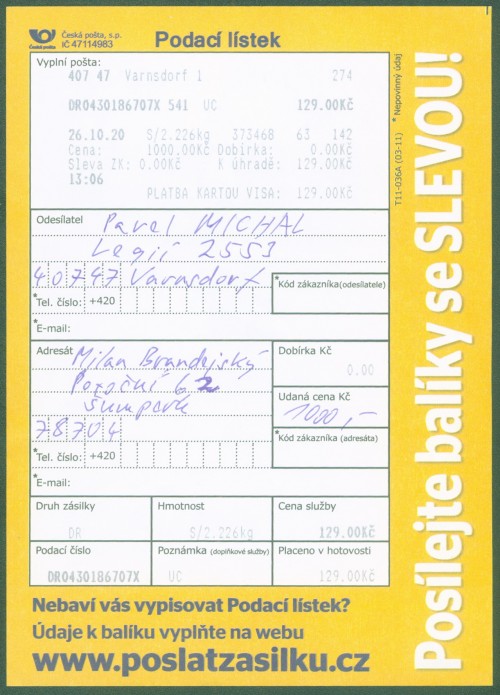 Česká pošta
Česká pošta, s.p.
IČ 47114983
Podací lístek
Vyplní pošta:
407 47 Varnsdorf 1 274
DR0430186707X 541 UC 129.00Kč
26.10.20 S/2.226kg 373468 63 142
Cena: 1000.00Kč Dobírka: 0.00Kč
Sleva ZK: 0.00Kč K úhradě: 129.00Kč
13:06
PLATBA KARTOU VISA: 129.00Kč
Odesílatel Pavel MICHAL
Legií 2553
40747 Varnsdorf
* Kód zákazníka (odesílatele)
* Tel. číslo: +420
* E-mail:
Adresát Milan Brandejský
62
Šumperk
78704
* Tel. číslo: +420
* E-mail:
Dobírka Kč
0.00
Udaná cena Kč
1000,-
* Kód zákazníka (adresáta)
Druh zásilky Hmotnost Cena služby
DR S/2.226kg 129.00Kč
Podací číslo Poznámka (doplňkové služby) Placeno v hotovosti
DR0430186707X UC 129.00Kč
Nebaví vás vypisovat Podací lístek?
Údaje k balíku vyplňte na webu
www.poslatzasilku.cz
T11-036A (03-11) * Nepovinný údaj
Posílejte balíky se SLEVOU!